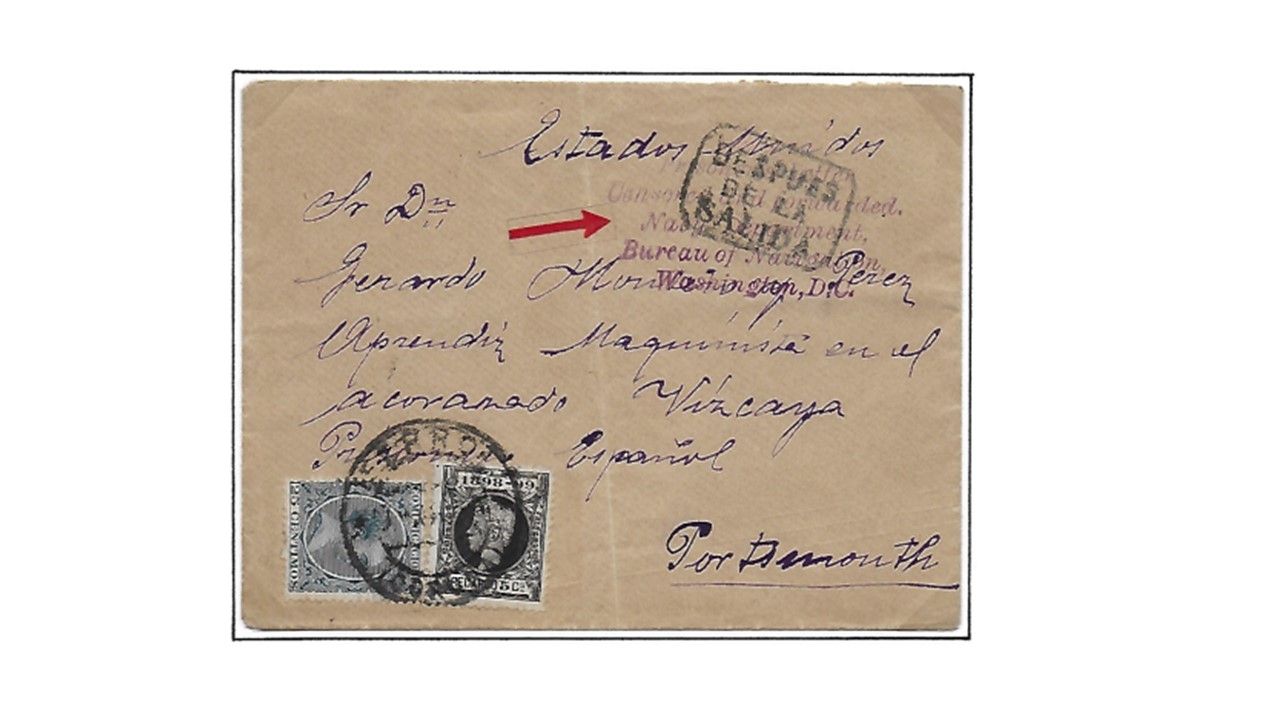 Estados Unidos
DESPUES
DE LA
SALIDA
Prisoner's letter
Censored and forwarded.
Navy Department,
Bureau of Navigation,
Washington, D.C.
Sr Dn
Gerardo y Perez
Aprendiz Maquinista en el
acorazado Vizcaya
Español
Portsmouth
FERROL
15 CENTIMOS
COMUNICACIONES
1898-99
RECARGO 5 Cs